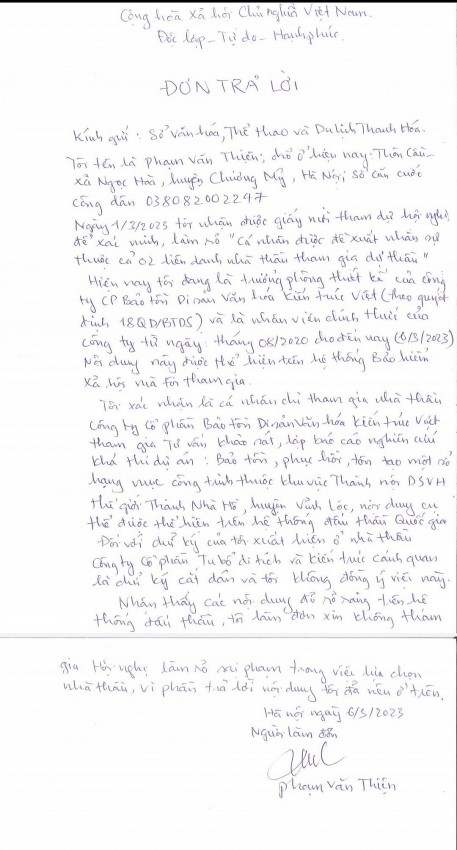 Cộng hòa Xã hội Chủ nghĩa Việt Nam.
Độc lập - Tự do - Hạnh phúc.
ĐƠN TRẢ LỜI
Kính gửi: Sở Văn hóa, Thể thao và Du lịch Thanh Hóa.
Tôi tên là Phạm Văn Thiện; chỗ ở hiện nay: Thôn Cầu -
xã Ngọc Hoà, huyện Chương Mỹ, Hà Nội; số căn cước
công dân 038082002247
Ngày 1/3/2023 tôi nhận được giấy mời tham dự hội nghị
để xác minh, làm rõ "Cá nhân được đề xuất nhân sự
thuộc cả 02 liên danh nhà thầu tham gia dự thầu"
Hiện nay tôi đang là trưởng phòng thiết kế của công
ty CP Bảo tồn Di sản Văn hóa Kiến trúc Việt (theo quyết
định 18QD/BTDS) và là nhân viên chính thức của
công ty từ ngày: tháng 08/2020 cho đến nay (6/3/2023)
Nội dung này được thể hiện trên hệ thống Bảo hiểm
xã hội mà tôi tham gia.
Tôi xác nhận là cá nhân chỉ tham gia nhà thầu
Công ty Cổ phần Bảo tồn Di sản Văn hóa kiến trúc Việt
tham gia Tư vấn khảo sát, lập báo cáo nghiên cứu
khả thi dự án: Bảo tồn, phục hồi, tôn tạo một số
hạng mục công trình thuộc khu vực Thành nội DSVH
thế giới Thành Nhà Hồ, huyện Vĩnh Lộc, nội dung cụ
thể được thể hiện trên hệ thống đấu thầu Quốc gia
Đối với chữ ký của tôi xuất hiện ở nhà thầu
Công ty Cổ phần Tu bổ di tích và kiến trúc cảnh quan
là chữ ký cắt dán và tôi không đồng ý việc này.
Nhận thấy các nội dung đã rõ ràng trên hệ
thống đấu thầu, tôi làm đơn xin không tham
gia Hội nghị làm rõ vi phạm trong việc lựa chọn
nhà thầu, vì phần trả lời nội dung tôi đã nêu ở trên.
Hà nội ngày 6/3/2023
Người làm đơn
Phạm Văn Thiện